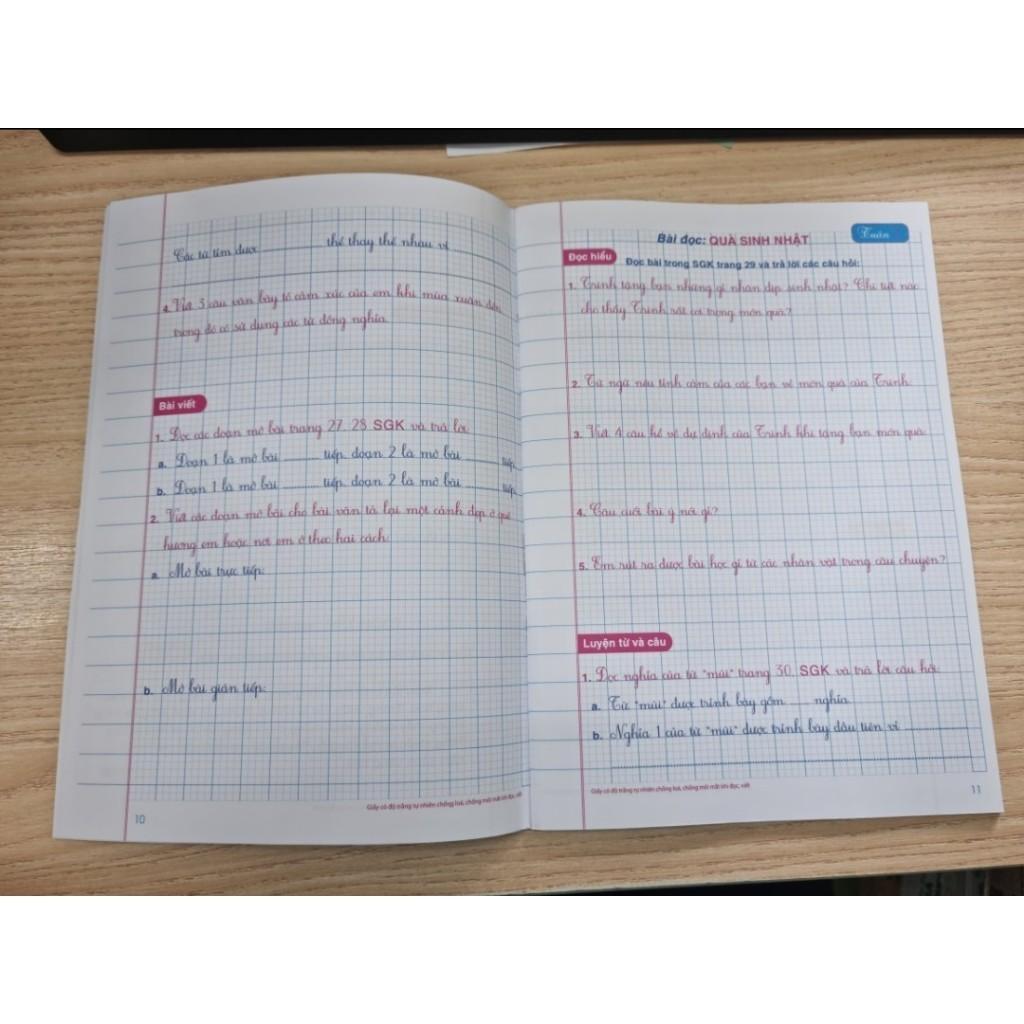 Các từ tìm được thể thay thế nhau vì
4. Viết 3 câu văn bày tỏ cảm xúc của em khi mùa xuân đến,
trong đó có sử dụng các từ đồng nghĩa.
Bài viết
1. Đọc các đoạn mở bài trang 27, 28 SGK và trả lời:
a. Đoạn 1 là mở bài ........... tiếp, đoạn 2 là mở bài ........... tiếp.
b. Đoạn 1 là mở bài ........... tiếp, đoạn 2 là mở bài ........... tiếp.
2. Viết các đoạn mở bài cho bài văn tả lại một cảnh đẹp ở quê
hương em hoặc nơi em ở theo hai cách:
a. Mở bài trực tiếp:
b. Mở bài gián tiếp:
Giấy có độ trắng tự nhiên chống loá, chống mỏi mắt khi đọc, viết
10
Tuần
Bài đọc: QUÀ SINH NHẬT
Đọc hiểu
Đọc bài trong SGK trang 29 và trả lời các câu hỏi:
1. Trinh tặng bạn những gì nhân dịp sinh nhật? Chi tiết nào
cho thấy Trinh rất coi trọng món quà?
2. Từ ngữ nêu tình cảm của các bạn về món quà của Trinh.
3. Viết 4 câu kể về dự định của Trinh khi tặng bạn món quà.
4. Câu cuối bài ý nói gì?
5. Em rút ra được bài học gì từ các nhân vật trong câu chuyện?
Luyện từ và câu
1. Đọc nghĩa của từ "mũi" trang 30, SGK và trả lời câu hỏi:
a. Từ "mũi" được trình bày gồm ...... nghĩa.
b. Nghĩa 1 của từ "mũi" được trình bày đầu tiên vì ....................
Giấy có độ trắng tự nhiên chống loá, chống mỏi mắt khi đọc, viết
11